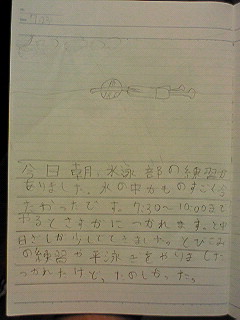 今日朝、水泳部の練習が
ありました。水の中がものすごくつ
めたかったです。7:30〜10:00まで
やるとさすがにつかれます。
日ざしが少しでてきました。とびこみ
の練習や平泳ぎをやりました
つかれたけど、たのしかった。